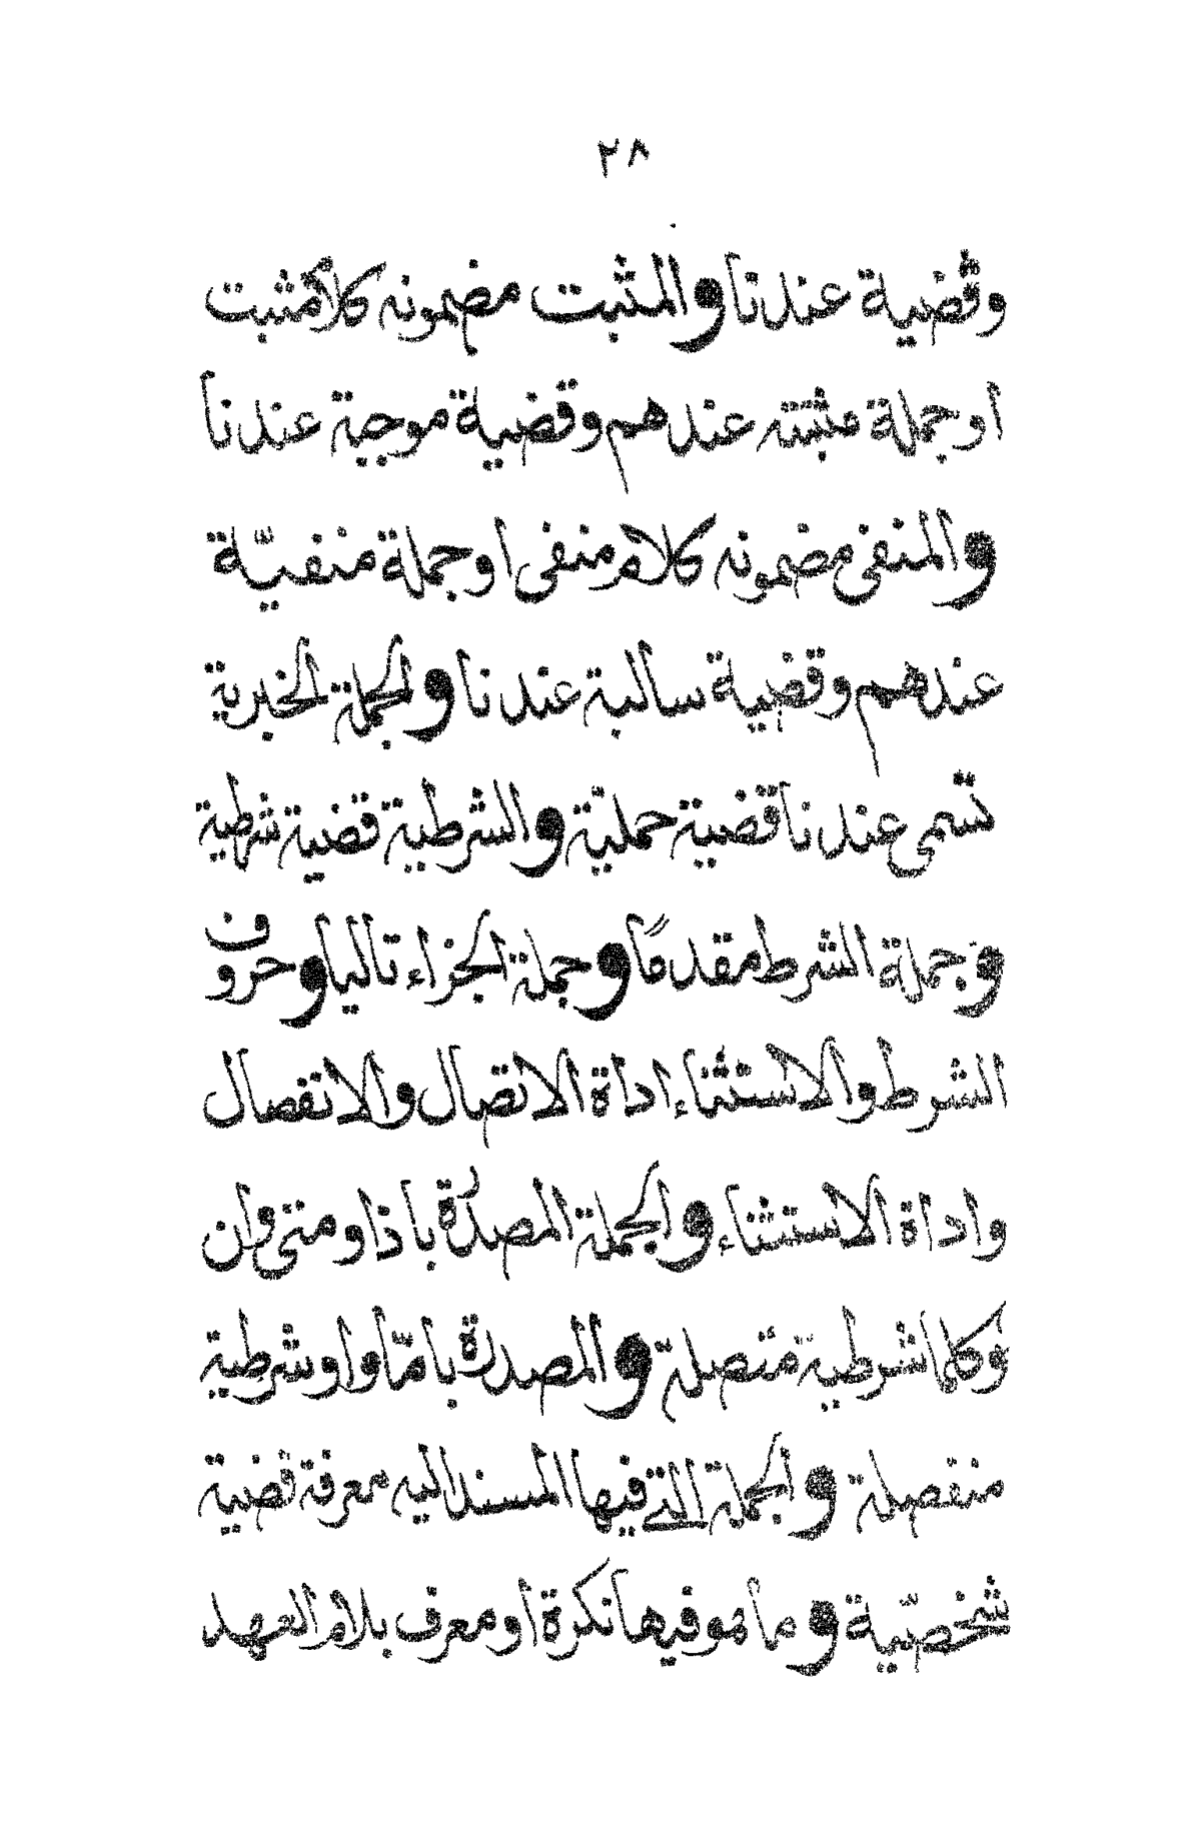 ٢٨
وقضية عندنا والمثبت مضمونه كلام مثبت
او جملة مثبتة عندهم وقضية موجبة عندنا
والمنفى مضمونه كلام منفى او جملة منفيّة
عندهم وقضية سالبة عندنا والجملة الخبرية
تسمى عندنا قضية حمليّة والشرطية قضية شرطية
وجملة الشرط مقدمًا وجملة الجزاء تاليا وحروف
الشرط والاستثناء اداة الاتصال والانفصال
واداة الاستثناء والجملة المصدرة باذا ومتى وان
وكلما شرطية متصلة والمصدرة بامّا واو شرطية
منفصلة والجملة التى فيها المسند اليه معرفة قضية
شخصيّة وما هو فيها نكرة او معرف بلام العهد